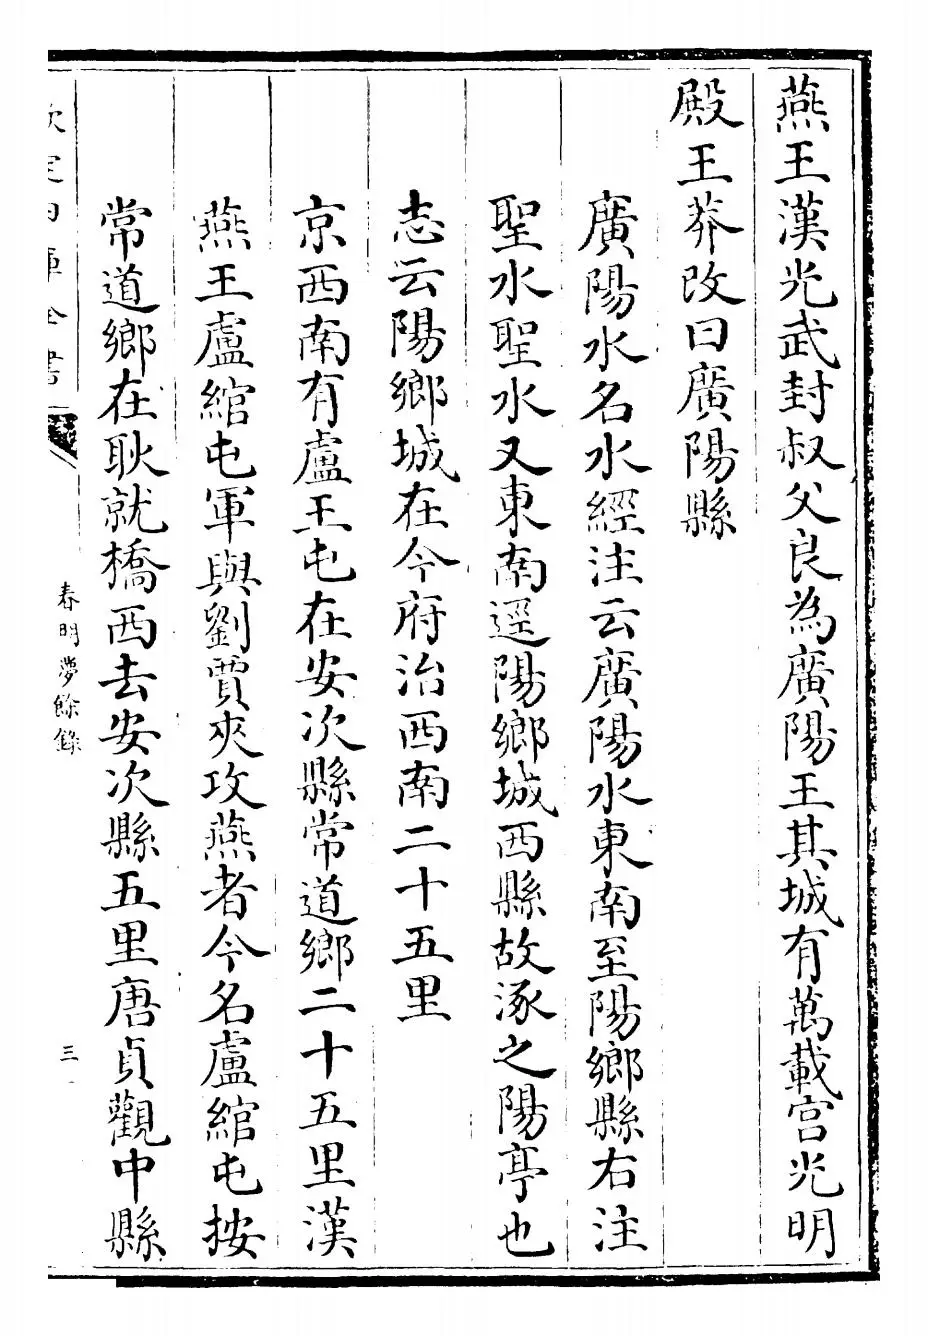 燕王漢光武封叔父良為廣陽王其城有萬載宫光明
殿王莽改曰廣陽縣
廣陽水名水經注云廣陽水東南至陽鄉縣右注
聖水聖水又東南逕陽鄉城西縣故涿之陽亭也
志云陽鄉城在今府治西南二十五里
京西南有盧王屯在安次縣常道鄉二十五里漢
燕王盧綰屯軍與劉賈夾攻燕者今名盧綰屯按
常道鄉在耿就橋西去安次縣五里唐貞觀中縣
欽定四庫全書
春明夢餘錄
三